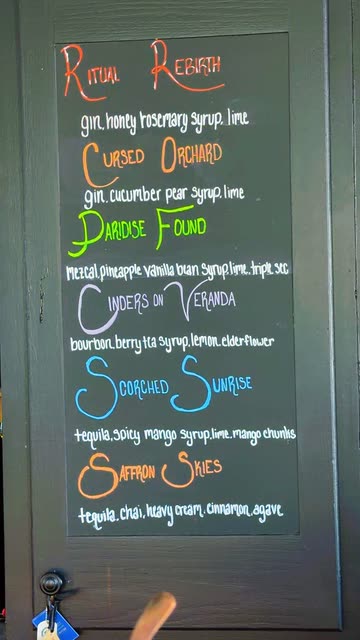 RITUAL REBIRTH
gin, honey rosemary syrup, lime
CURSED ORCHARD
gin, cucumber pear syrup, lime
PARIDISE FOUND
mezcal, pineapple vanilla bean syrup, lime, triple sec
CINDERS ON VERANDA
bourbon, berry tea syrup, lemon, elderflower
SCORCHED SUNRISE
tequila, spicy mango syrup, lime, mango chunks
SAFFRON SKIES
tequila, chai, heavy cream, cinnamon, agave